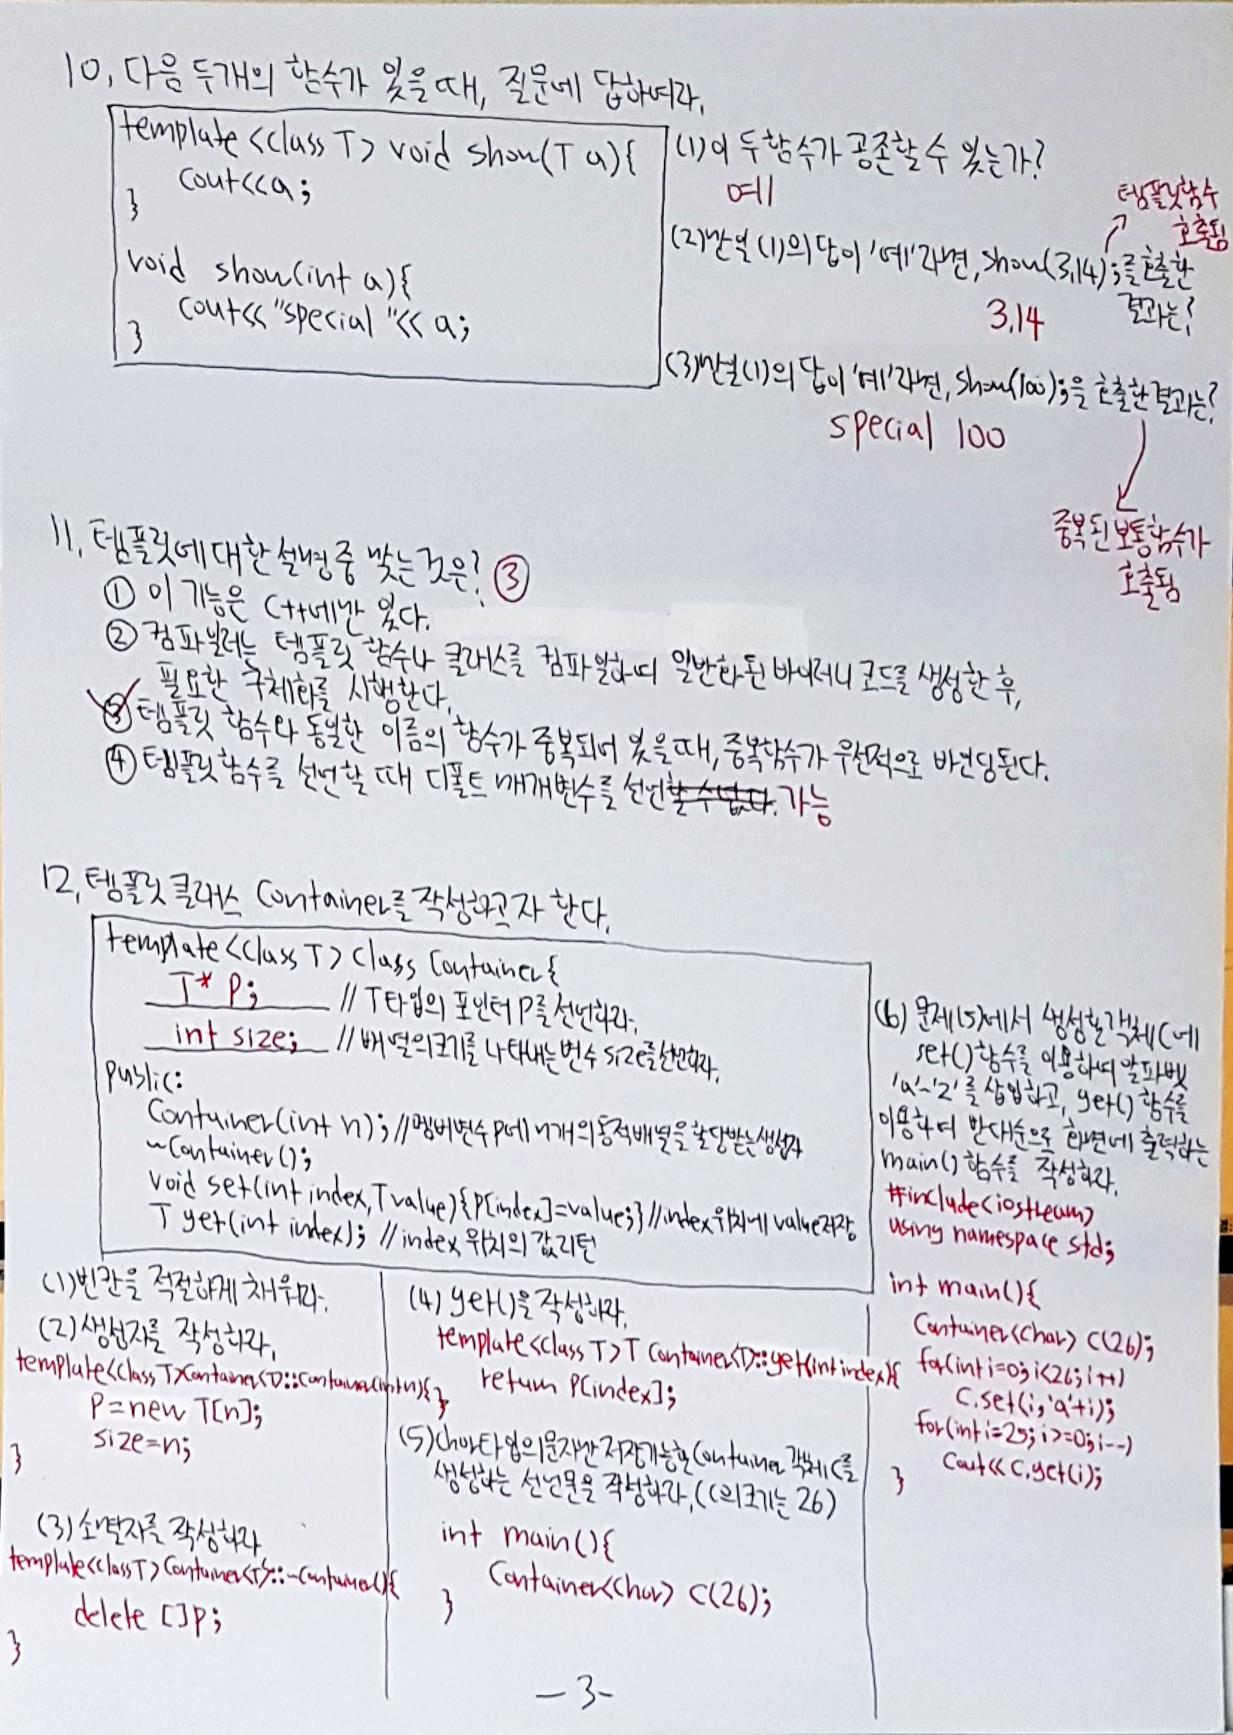 10, 다음 두개의 함수가 있을 때, 질문에 답하여라.
template<class T> void show(T a){
cout<<a;
}
void show(int a){
cout<<"special "<< a;
}
(1)이 두함수가 공존할 수 있는가?
예
템플릿함수
호출됨
(2)만일 (1)의 답이 '예'라면, show(3.14);를 호출한
결과는?
3.14
(3)만일(1)의 답이 '예'라면, show(100);을 호출한 결과는?
special 100
중복된 보통함수가
호출됨
11, 템플릿에 대한 설명 중 맞는 것은? ③
① 이 기능은 C++에만 있다.
② 컴파일러는 템플릿 함수나 클래스를 컴파일하여 일반화된 바이너리 코드를 생성한 후,
필요한 구체화를 시행한다.
③ 템플릿 함수와 동일한 이름의 함수가 중복되어 있을 때, 중복함수가 우선적으로 바인딩된다.
④ 템플릿 함수를 선언할 때 디폴트 매개변수를 선언할 수 없다. 가능
12, 템플릿 클래스 Container를 작성하고자 한다.
template<class T> class Container{
T* p; // T타입의 포인터 p를 선언하라.
int size; //배열의 크기를 나타내는 변수 size를 선언하라.
public:
Container(int n); //멤버변수 p에 n개의 동적배열을 할당받는 생성자
~Container();
void set(int index, T value){p[index]=value;} //index 위치에 value저장
T get(int index); //index 위치의 값 리턴
(1)빈칸을 적절하게 채워라.
(2)생성자를 작성하라.
template<class T>Container<T>::Container(int n){
p=new T[n];
size=n;
}
(3)소멸자를 작성하라
template<class T>Container<T>::~Container(){
delete []p;
}
(4) get()을 작성하라.
template<class T>T Container<T>::get(int index){
return p[index];
}
(5)char타입의 문자만 저장가능한 Container 객체 c를
생성하는 선언문을 작성하라.(c의 크기는 26)
int main(){
Container<char> c(26);
}
(6) 문제(5)에서 생성한 객체 c에
set()함수를 이용하여 알파벳
'a'~'z'를 삽입하고, get() 함수를
이용하여 반대순으로 화면에 출력하는
main()함수를 작성하라.
#include<iostream>
using namespace std;
int main(){
Container<char> c(26);
for(int i=0;i<26;i++)
c.set(i,'a'+i);
for(int i=25;i>=0;i--)
cout<<c.get(i);
}
-3-